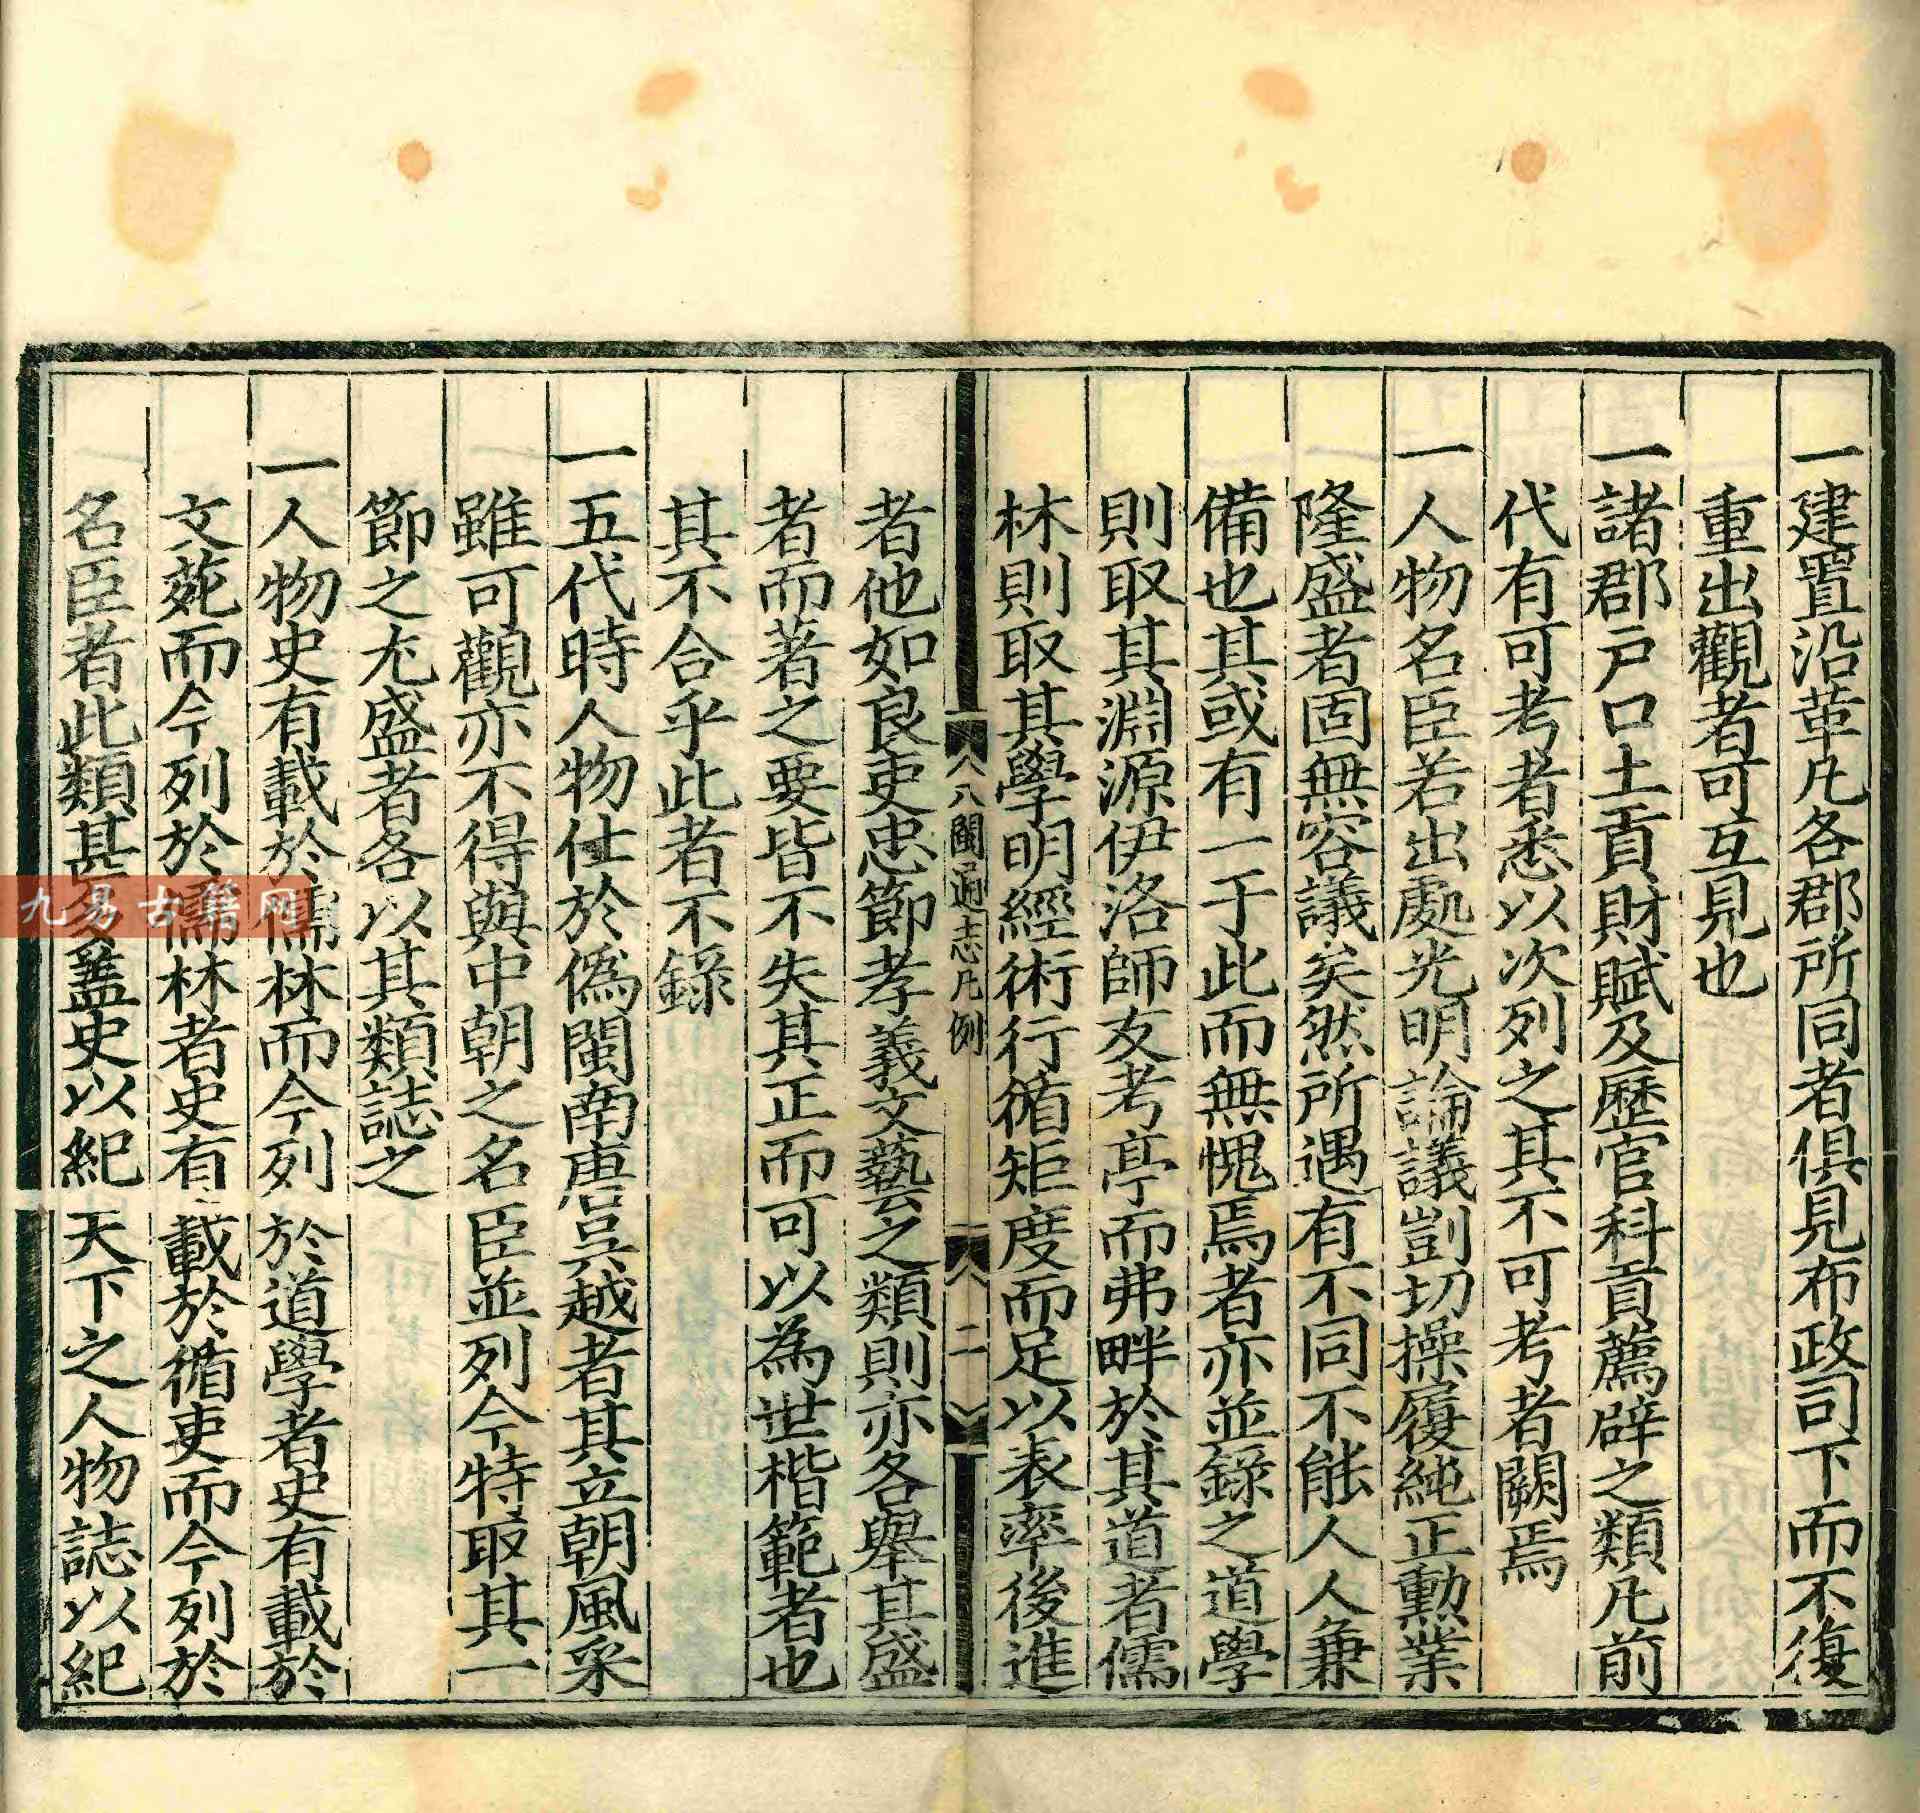 一建置沿革凡各郡所同者俱見布政司下而不復
重出觀者可互見也
一諸郡戶口土貢財賦及歷官科貢薦辟之類凡前
代有可考者悉以次列之其不可考者闕焉
一人物名臣若出處光明論議剴切操履純正勳業
隆盛者固無容議矣然所遇有不同不能人人兼
備也其或有一于此而無愧焉者亦並錄之道學
則取其淵源伊洛師友考亭而弗畔於其道者儒
林則取其學明經術行循矩度而足以表率後進
八閩通志凡例
二
者他如良吏忠節孝義文藝之類則亦各舉其盛
者而著之要皆不失其正而可以為世楷範者也
其不合乎此者不錄
一五代時人物仕於偽閩南唐吳越者其立朝風采
雖可觀亦不得與中朝之名臣並列今特取其一
節之尤盛者各以其類誌之
一人物史有載於儒林而今列於道學者史有載於
文苑而今列於儒林者史有載於循吏而今列於
名臣者此類甚多蓋史以紀天下之人物誌以紀
九易古籍网